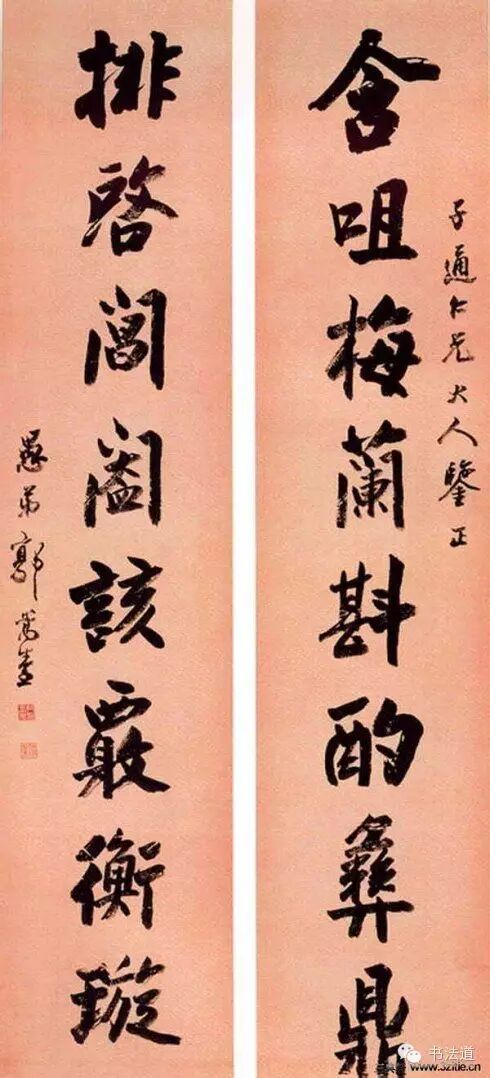 子通仁兄大人鑒正
含咀梅蘭斟酌彝鼎
排啓閶闔該覈衡璇
愚弟郭嵩燾
书法道
www.3zitie.cn